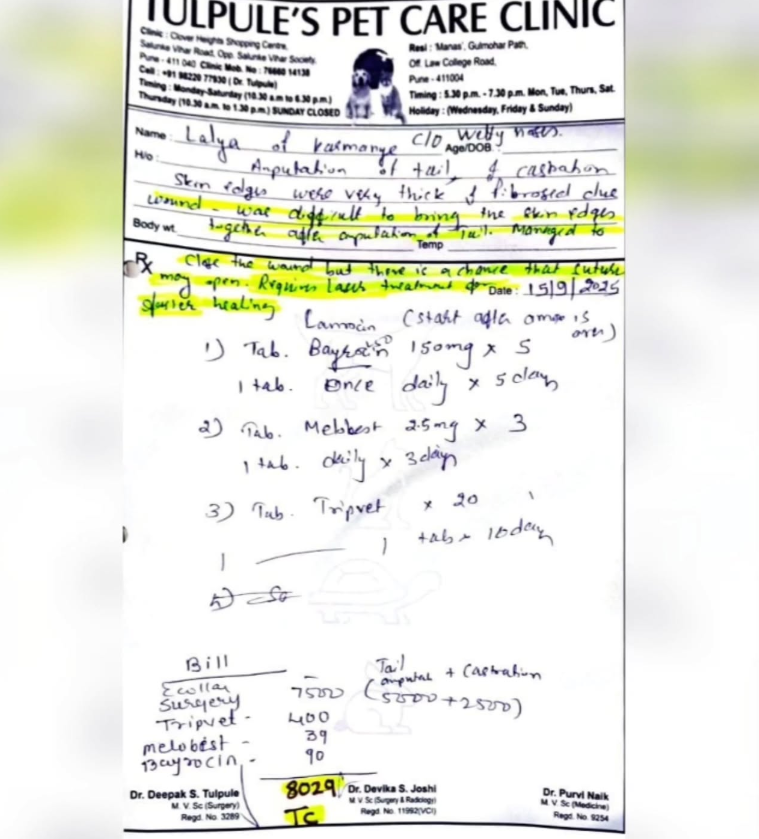 TULPULE'S PET CARE CLINIC
Clinic : Clover Heights Shopping Centre,
Salunke Vihar Road, Opp. Salunke Vihar Society,
Pune - 411 040 Clinic Mob. No : 76660 14138
Cell : +91 98220 77930 ( Dr. Tulpule)
Timing : Monday-Saturday (10.30 a.m to 6.30 p.m.)
Thursday (10.30 a.m. to 1.30 p.m.) SUNDAY CLOSED
Resi : 'Manas', Gulmohar Path,
Off. Law College Road,
Pune - 411004
Timing : 5.30 p.m. - 7.30 p.m. Mon, Tue, Thurs, Sat.
Holiday : (Wednesday, Friday & Sunday)
Name : Lalya of c/o
Age/DOB.
H/o : Amputation of tail & castration
Skin edges were very thick & fibrosed due
wound - was difficult to bring the skin edges
together after amputation of Tail. Managed to
Body wt. Temp
Rx Close the wound but there is a chance that suture
may open. Requires Laser treatment for
Date : 15/9/2025
faster healing
(start after is over)
1) Tab. 150mg x 5
1 tab. Once daily x 5 days
2) Tab. Melobest 2.5mg x 3
1 tab. daily x 3 days
3) Tab. Tripvet x 20
1 — 1 tab x 10 days
Bill
Ecollar -
Surgery 7500 (Tail amputat + Castration
(5000 + 2500)
Tripvet - 400
melobest - 39
Bayrocin - 90
8029
TC
Dr. Deepak S. Tulpule
M. V. Sc (Surgery)
Regd. No. 3289
Dr. Devika S. Joshi
M. V. Sc (Surgery & Radiology)
Regd. No. 11992(VCI)
Dr. Purvi Naik
M. V. Sc (Medicine)
Regd. No. 9254